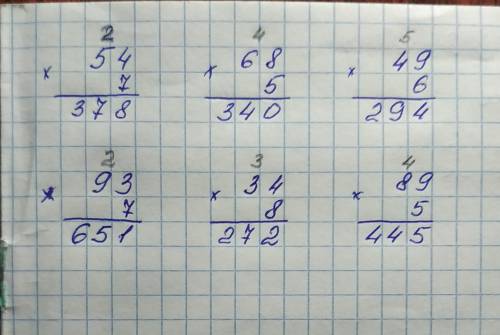 2 4 5
54 68 49
× 7 × 5 × 6
378 340 294
2 3 4
93 34 89
× 7 × 8 × 5
651 272 445